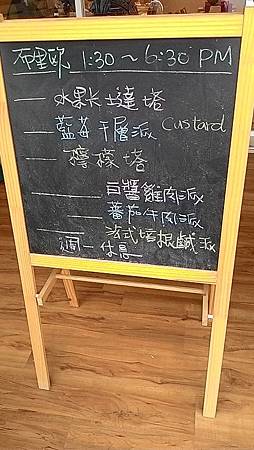 布里歐 1:30~6:30 PM
水果卡士達塔
藍莓千層派 Custard
檸檬塔
白醬雞肉派
蕃茄牛肉派
法式培根鹹派
週一休息